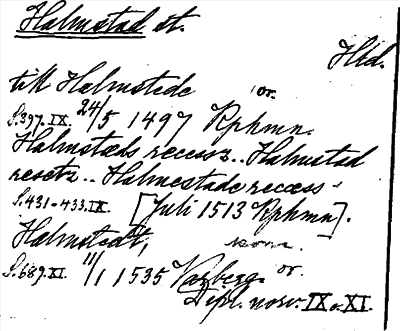 Halmstad st.
Hld.
till Halmstede or.
S.397.IX. 24/5 1497 Rphmn.
Halmstads recess.. Halmstad
recetz.. Halmestade recess
S.431-433.IX. [Juli 1513 Rphmn].
Halmstedt, konc.
S.689.XI. 11/1 1535 Varberg. or.
Dipl. norv. IX o. XI.